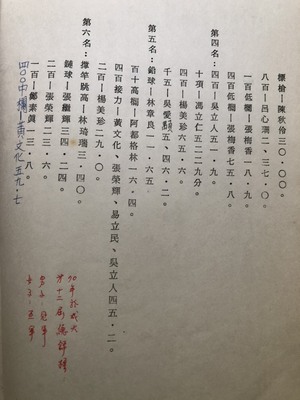 標槍—陳秋伶三〇.〇〇。
八百—呂心瑞二.三七〇。
二百低欄—張梅香一八.九。
四百低欄—張梅香七五.八。
第四名：四百—吳立人五一.九。
十項—馮立仁五二二九分。
四百—楊美珍六五.六。
千五—吳愛顧五.四六.二。
第五名：鉛球—林章良一一.六五
百十高欄—阿都格林一六.四。
四百接力—黃文化、張榮輝、易立民、吳立人四五.二。
二百—楊美珍二九.〇。
第六名：撐竿跳高—林琦瑞三.四〇。
鏈球—張繼輝三四.二四。
二百—張榮輝二三.六。
一百—鄭素眞一三.八。
四〇〇中欄—黃文化五九.七
70年於成大
第十二屆總錦標
男子—冠軍
女子—亞軍